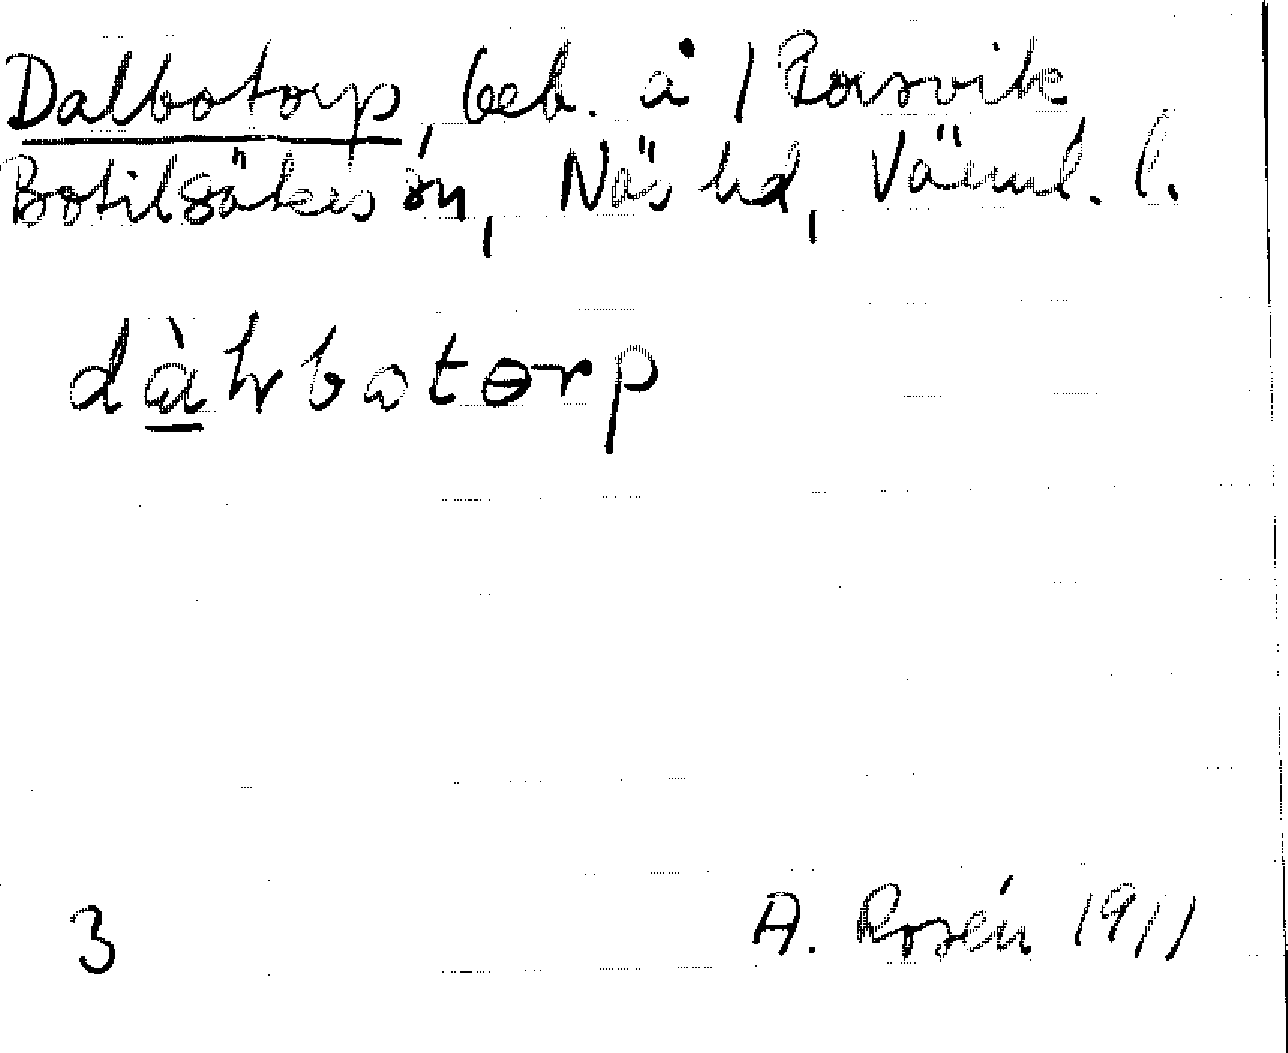 Dalbotorp, beb. å 1 Rorsvik
Botilsäters sn, Näs hd, Värml. l.
dàlrbatɵrp
3
A. Rosén 1911